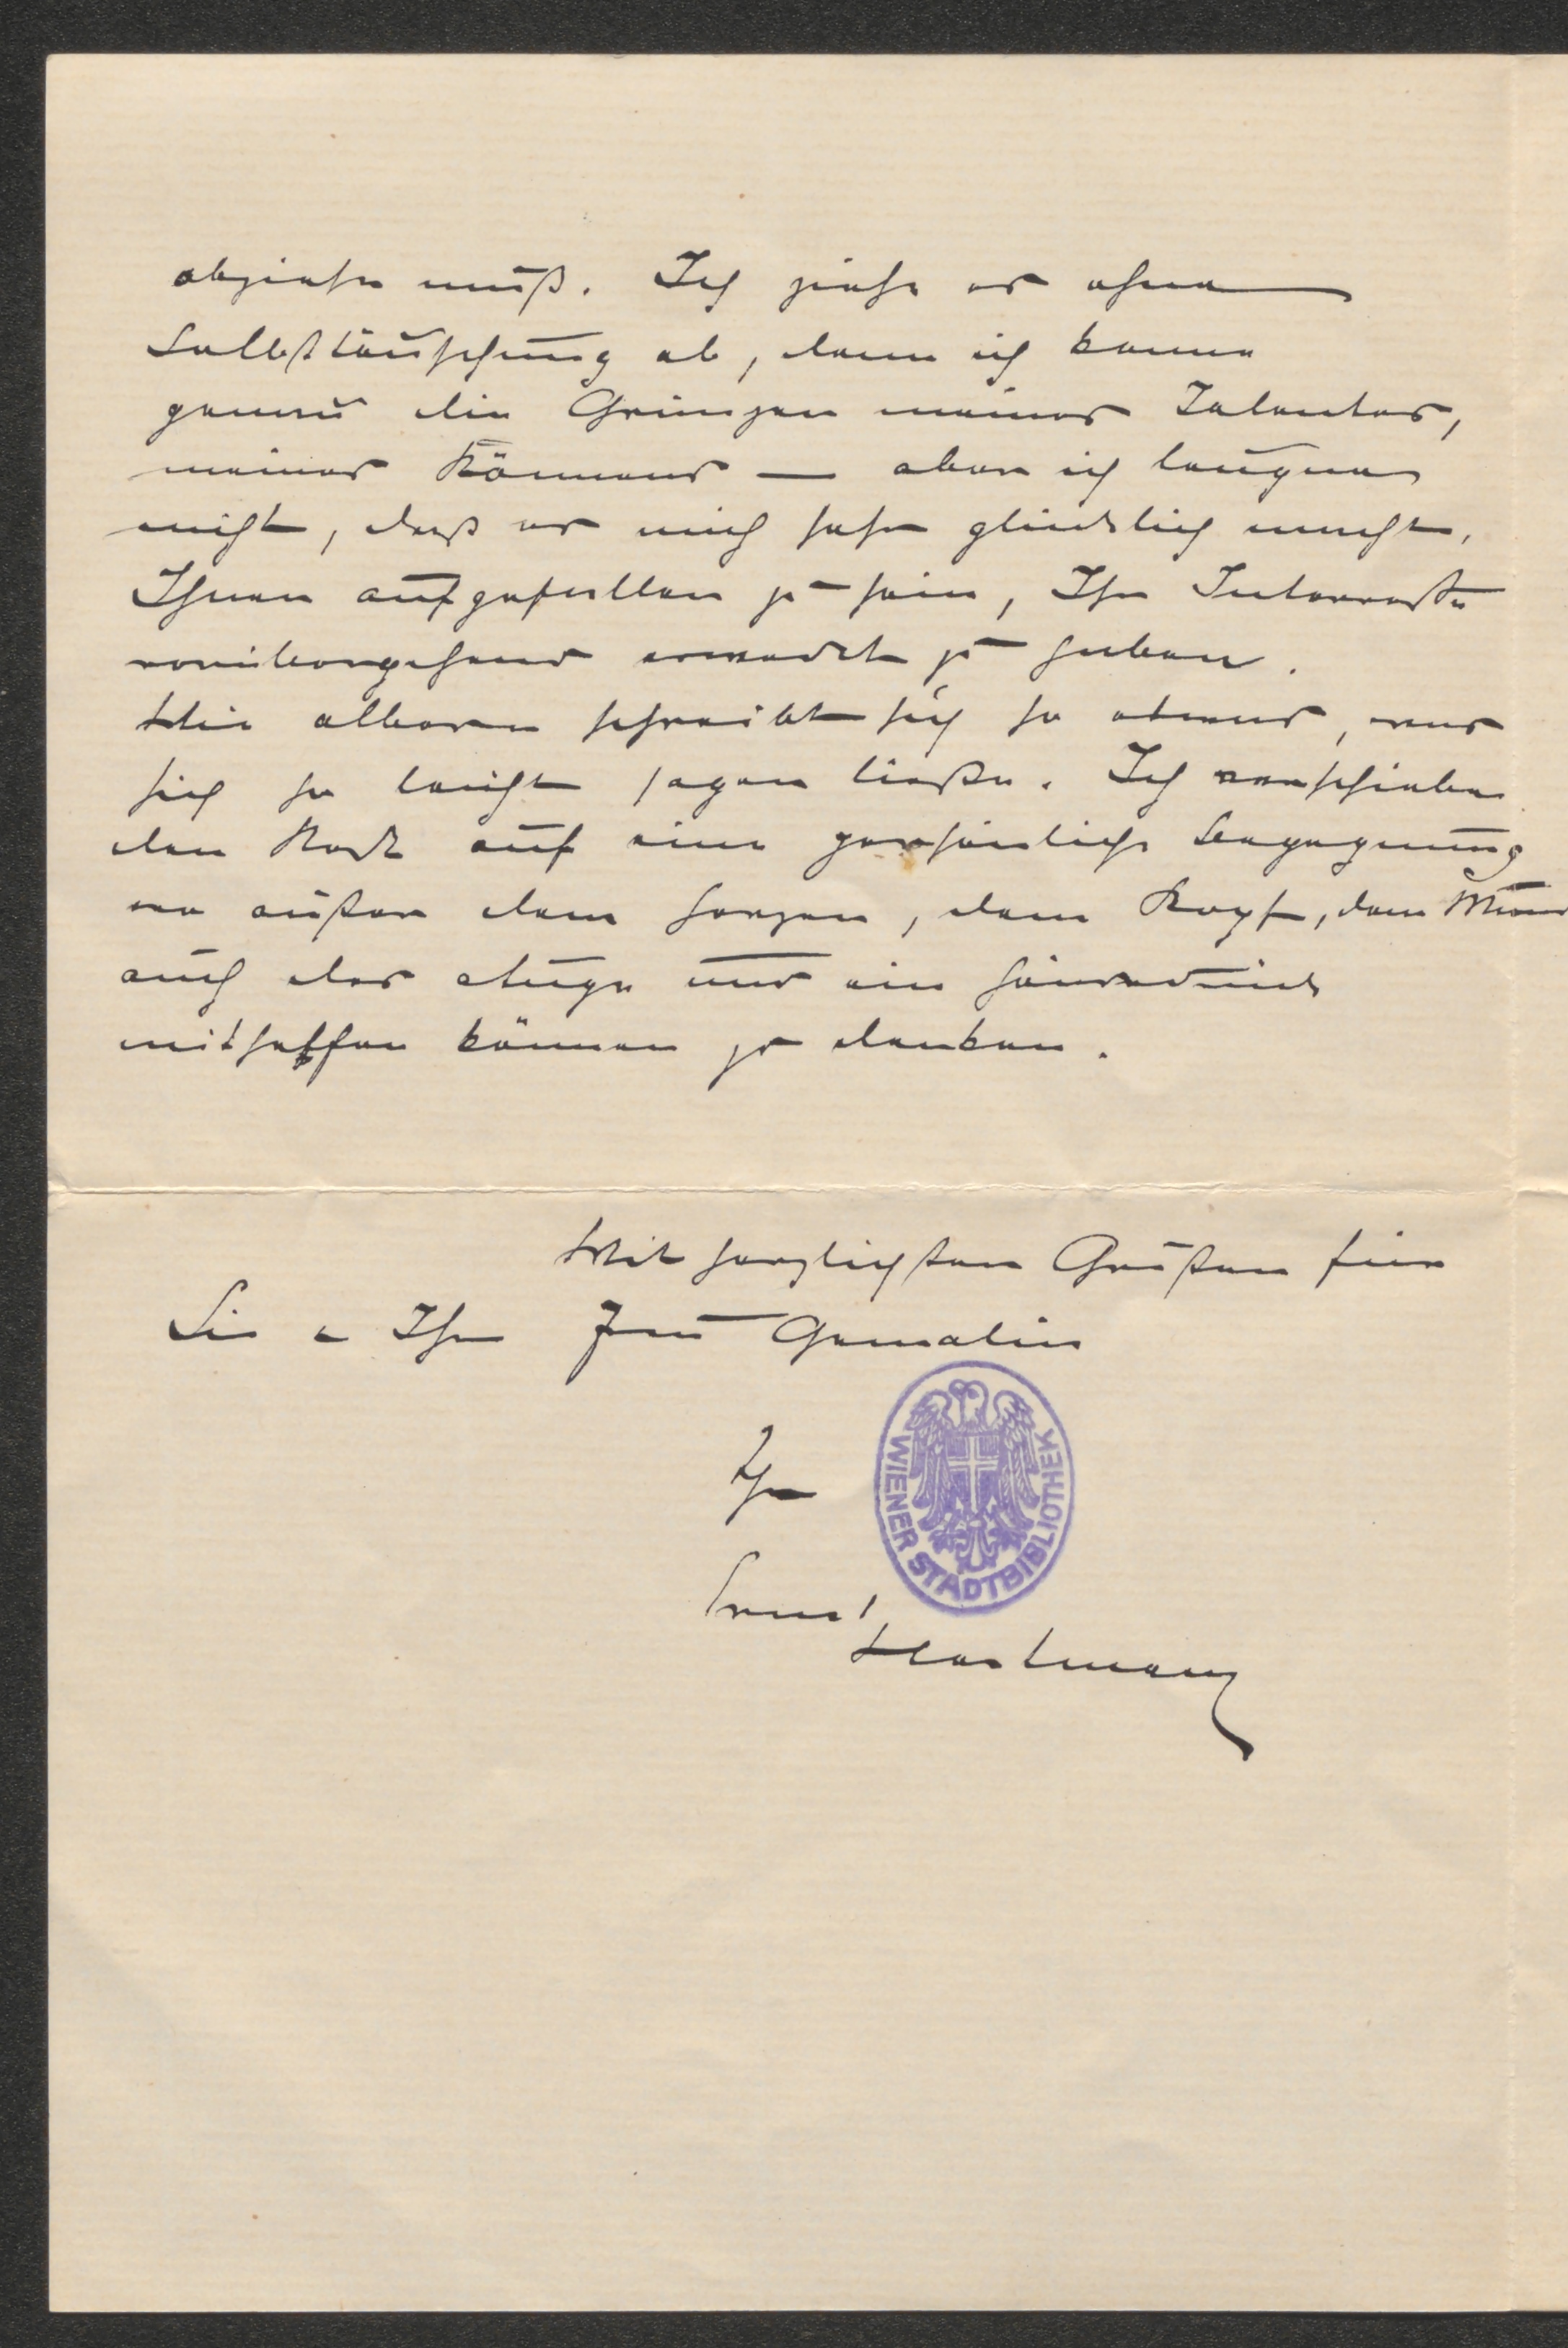 abziehen muß. Ich ziehe es ohne
Selbsttäuschung ab, denn ich kenne
genau die Gränzen meines Talentes,
meines Könnens — aber ich leugne
nicht, daß es mich sehr glücklich macht,
Ihnen aufgefallen zu sein, Ihr Interesse
vorübergehend erweckt zu haben.
Wie albern schreibt sich so etwas, was
sich so leicht sagen ließe. Ich verschiebe
den Rest auf eine persönliche Begegnung
wo außer dem Herzen, dem Kopf, dem Mund
auch das Auge und ein Händedruck
mithelfen können zu danken.
Mit herzlichsten Grüßen für
Sie u Ihre Frau Gemalin
Ihr
Ernst
Hartmann
WIENER STADTBIBLIOTHEK